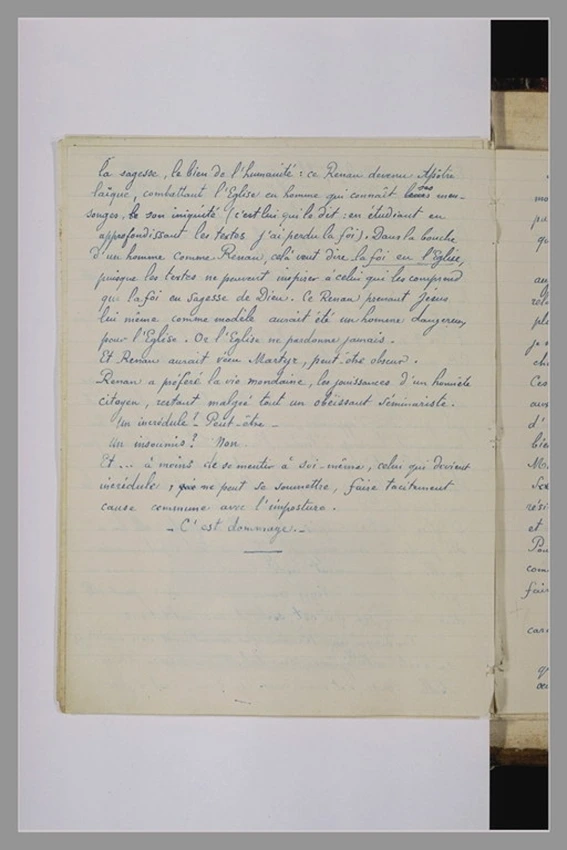 la sagesse, le bien de l'humanité : ce Renan devenu Apôtre
laïque, combattant l'Eglise en homme qui connaît ses men-
songes, son iniquité (c'est lui qui le dit : en étudiant en
approfondissant les textes j'ai perdu la foi). Dans la bouche
d'un homme comme Renan, celà veut dire la foi en l'Eglise,
puisque les textes ne peuvent inspirer à celui qui les comprend
que la foi en sagesse de Dieu. Ce Renan prenant Jesus
lui même comme modèle aurait été un homme dangereux
pour l'Eglise. Or l'Eglise ne pardonne jamais.
Et Renan aurait vécu Martyr, peut-être obscur.
Renan a préféré la vie mondaine, les jouissances d'un honnête
citoyen, restant malgré tout un obéissant séminariste.
Un incrédule ! Peut-être -
Un insoumis ? Non.
Et ... à moins de se mentir à soi-même, celui qui devient
incrédule, ne peut se soumettre, faire tacitement
cause commune avec l'imposture.
- C'est dommage. -
mo
pa
qu
au
rela
pl
je s
ch
Ces
aux
d'
bie
M.
Se
rési
et
Pou
com
fai
car
q
œu